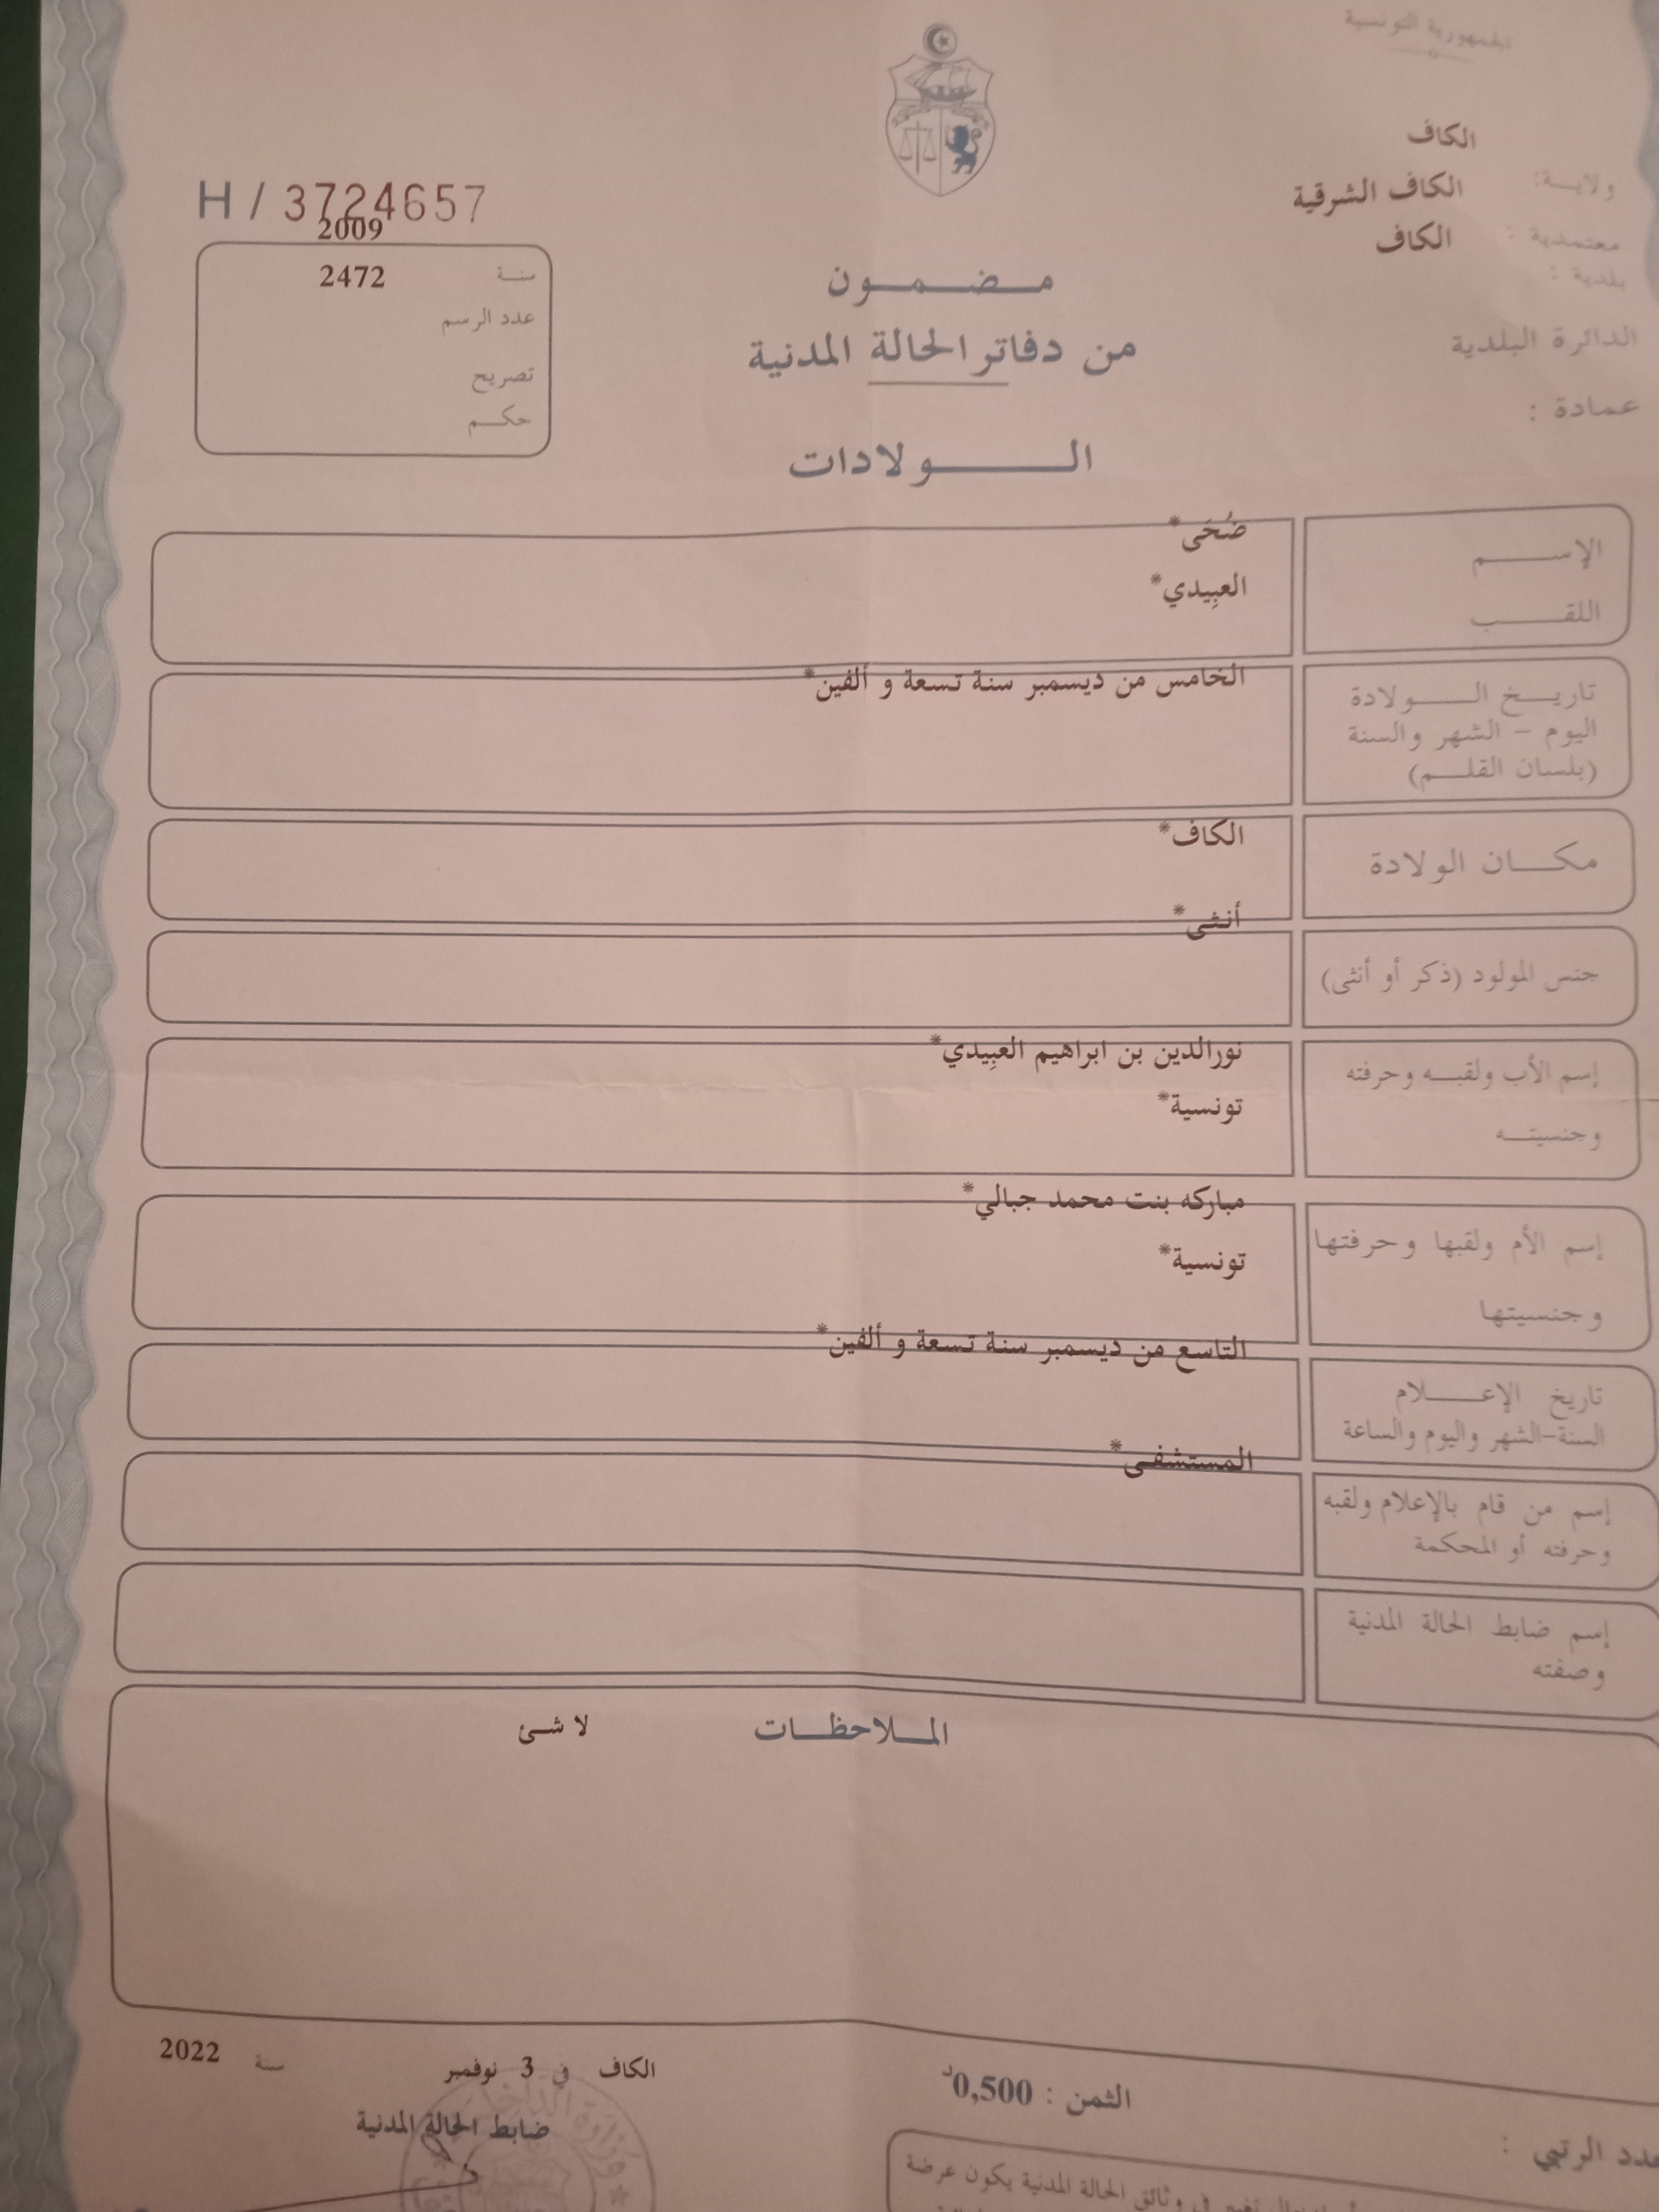 الجمهورية التونسية
ولاية: الكاف
معتمدية : الكاف الشرقية
بلدية : الكاف
الدائرة البلدية
عمادة :
H / 3724657
2009
سنة 2472
عدد الرسم
تصريح
حكم
مضمون
من دفاتر الحالة المدنية
الولادات
الإسم ضُحَى*
اللقب العبِيدي*
تاريخ الولادة الخامس من ديسمبر سنة تسعة و ألفين*
اليوم - الشهر والسنة
(بلسان القلم)
مكان الولادة الكاف*
جنس المولود (ذكر أو أنثى) أنثى*
إسم الأب ولقبه وحرفته نورالدين بن ابراهيم العبِيدي*
وجنسيته تونسية*
إسم الأم ولقبها وحرفتها مباركه بنت محمد جبالي*
وجنسيتها تونسية*
تاريخ الإعلام التاسع من ديسمبر سنة تسعة و ألفين*
السنة-الشهر واليوم والساعة
إسم من قام بالإعلام ولقبه المستشفى*
وحرفته أو المحكمة
إسم ضابط الحالة المدنية
وصفته
الملاحظات لا شئ
الكاف في 3 نوفمبر سنة 2022
ضابط الحالة المدنية
الثمن : 0,500د
عدد الرتبي :
في وثائق الحالة المدنية يكون عرضة